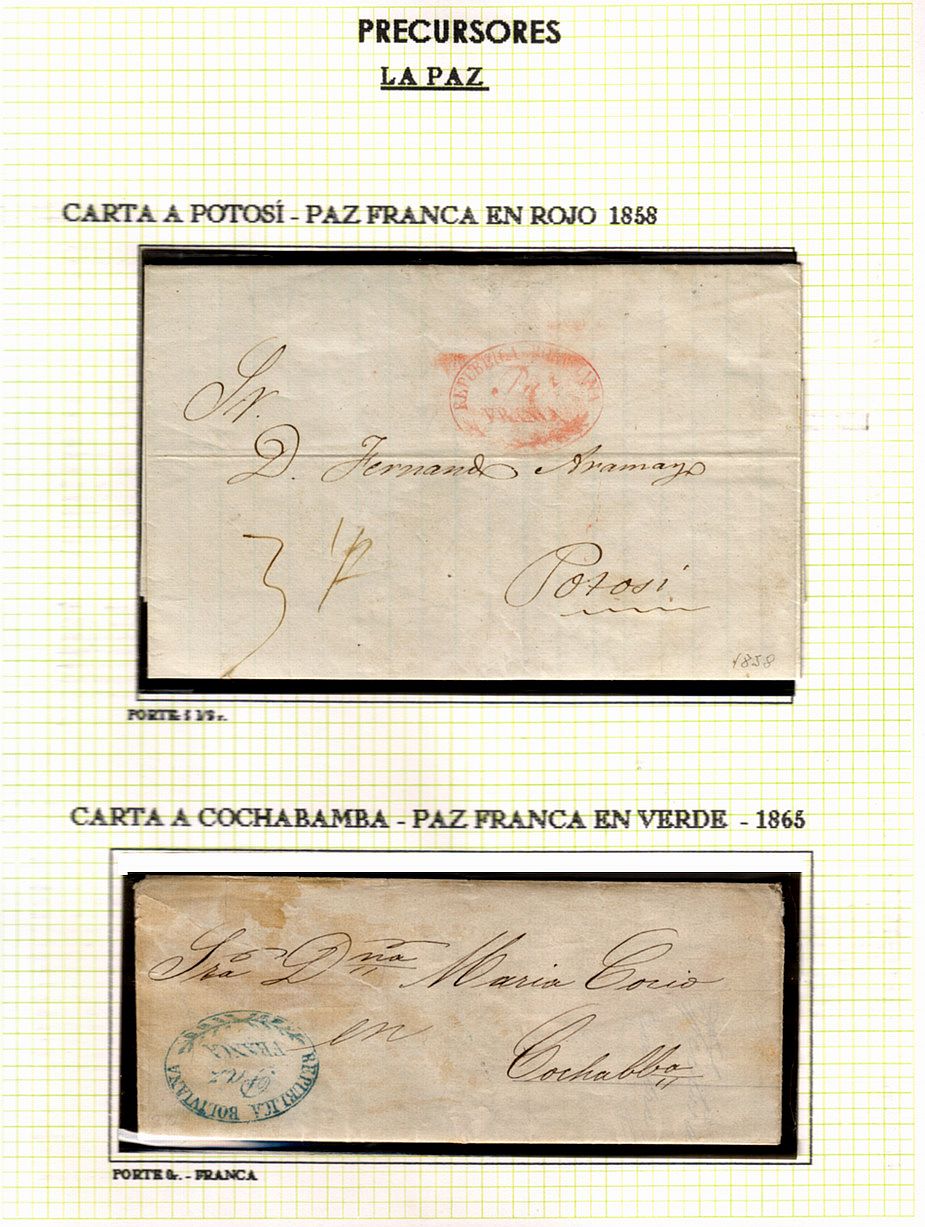 PRECURSORES
LA PAZ
CARTA A POTOSÍ - PAZ FRANCA EN ROJO 1858
REPUBLICA BOLIVIANA
Paz
FRANCA
Sr.
D. Fernando Aramayo
3 1/2
Potosi
1858
PORTE:
CARTA A COCHABAMBA - PAZ FRANCA EN VERDE - 1865
Sra Dña Maria Cocio
en
Cochabba
REPUBLICA BOLIVIANA
Paz
FRANCA
PORTE 0r. - FRANCA